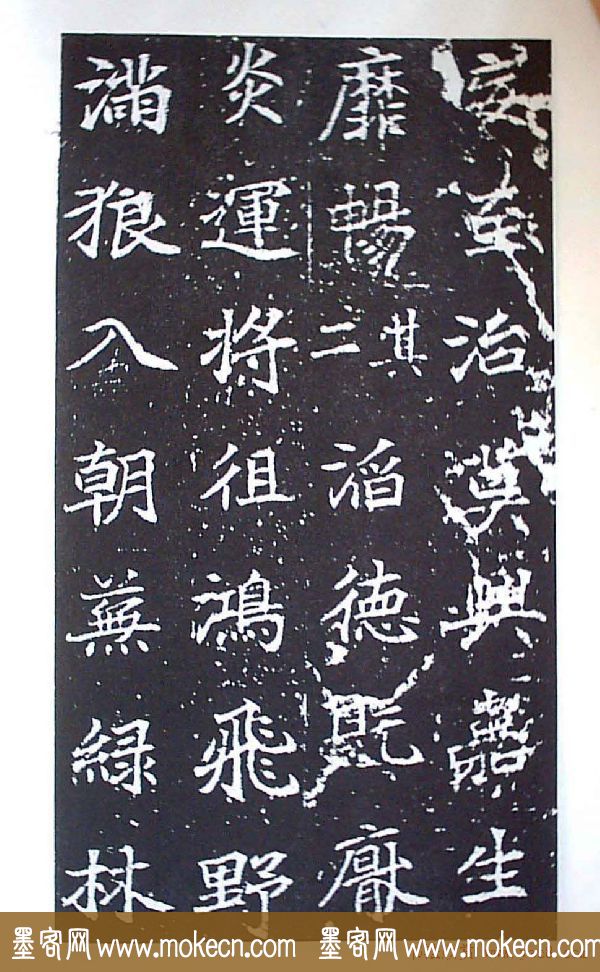 治莫興生
靡暢其二滔德既
炎運將徂鴻飛野
狼入朝蕪綠林
墨客网 www.mokecn.com 墨客网 www.mokecn.com